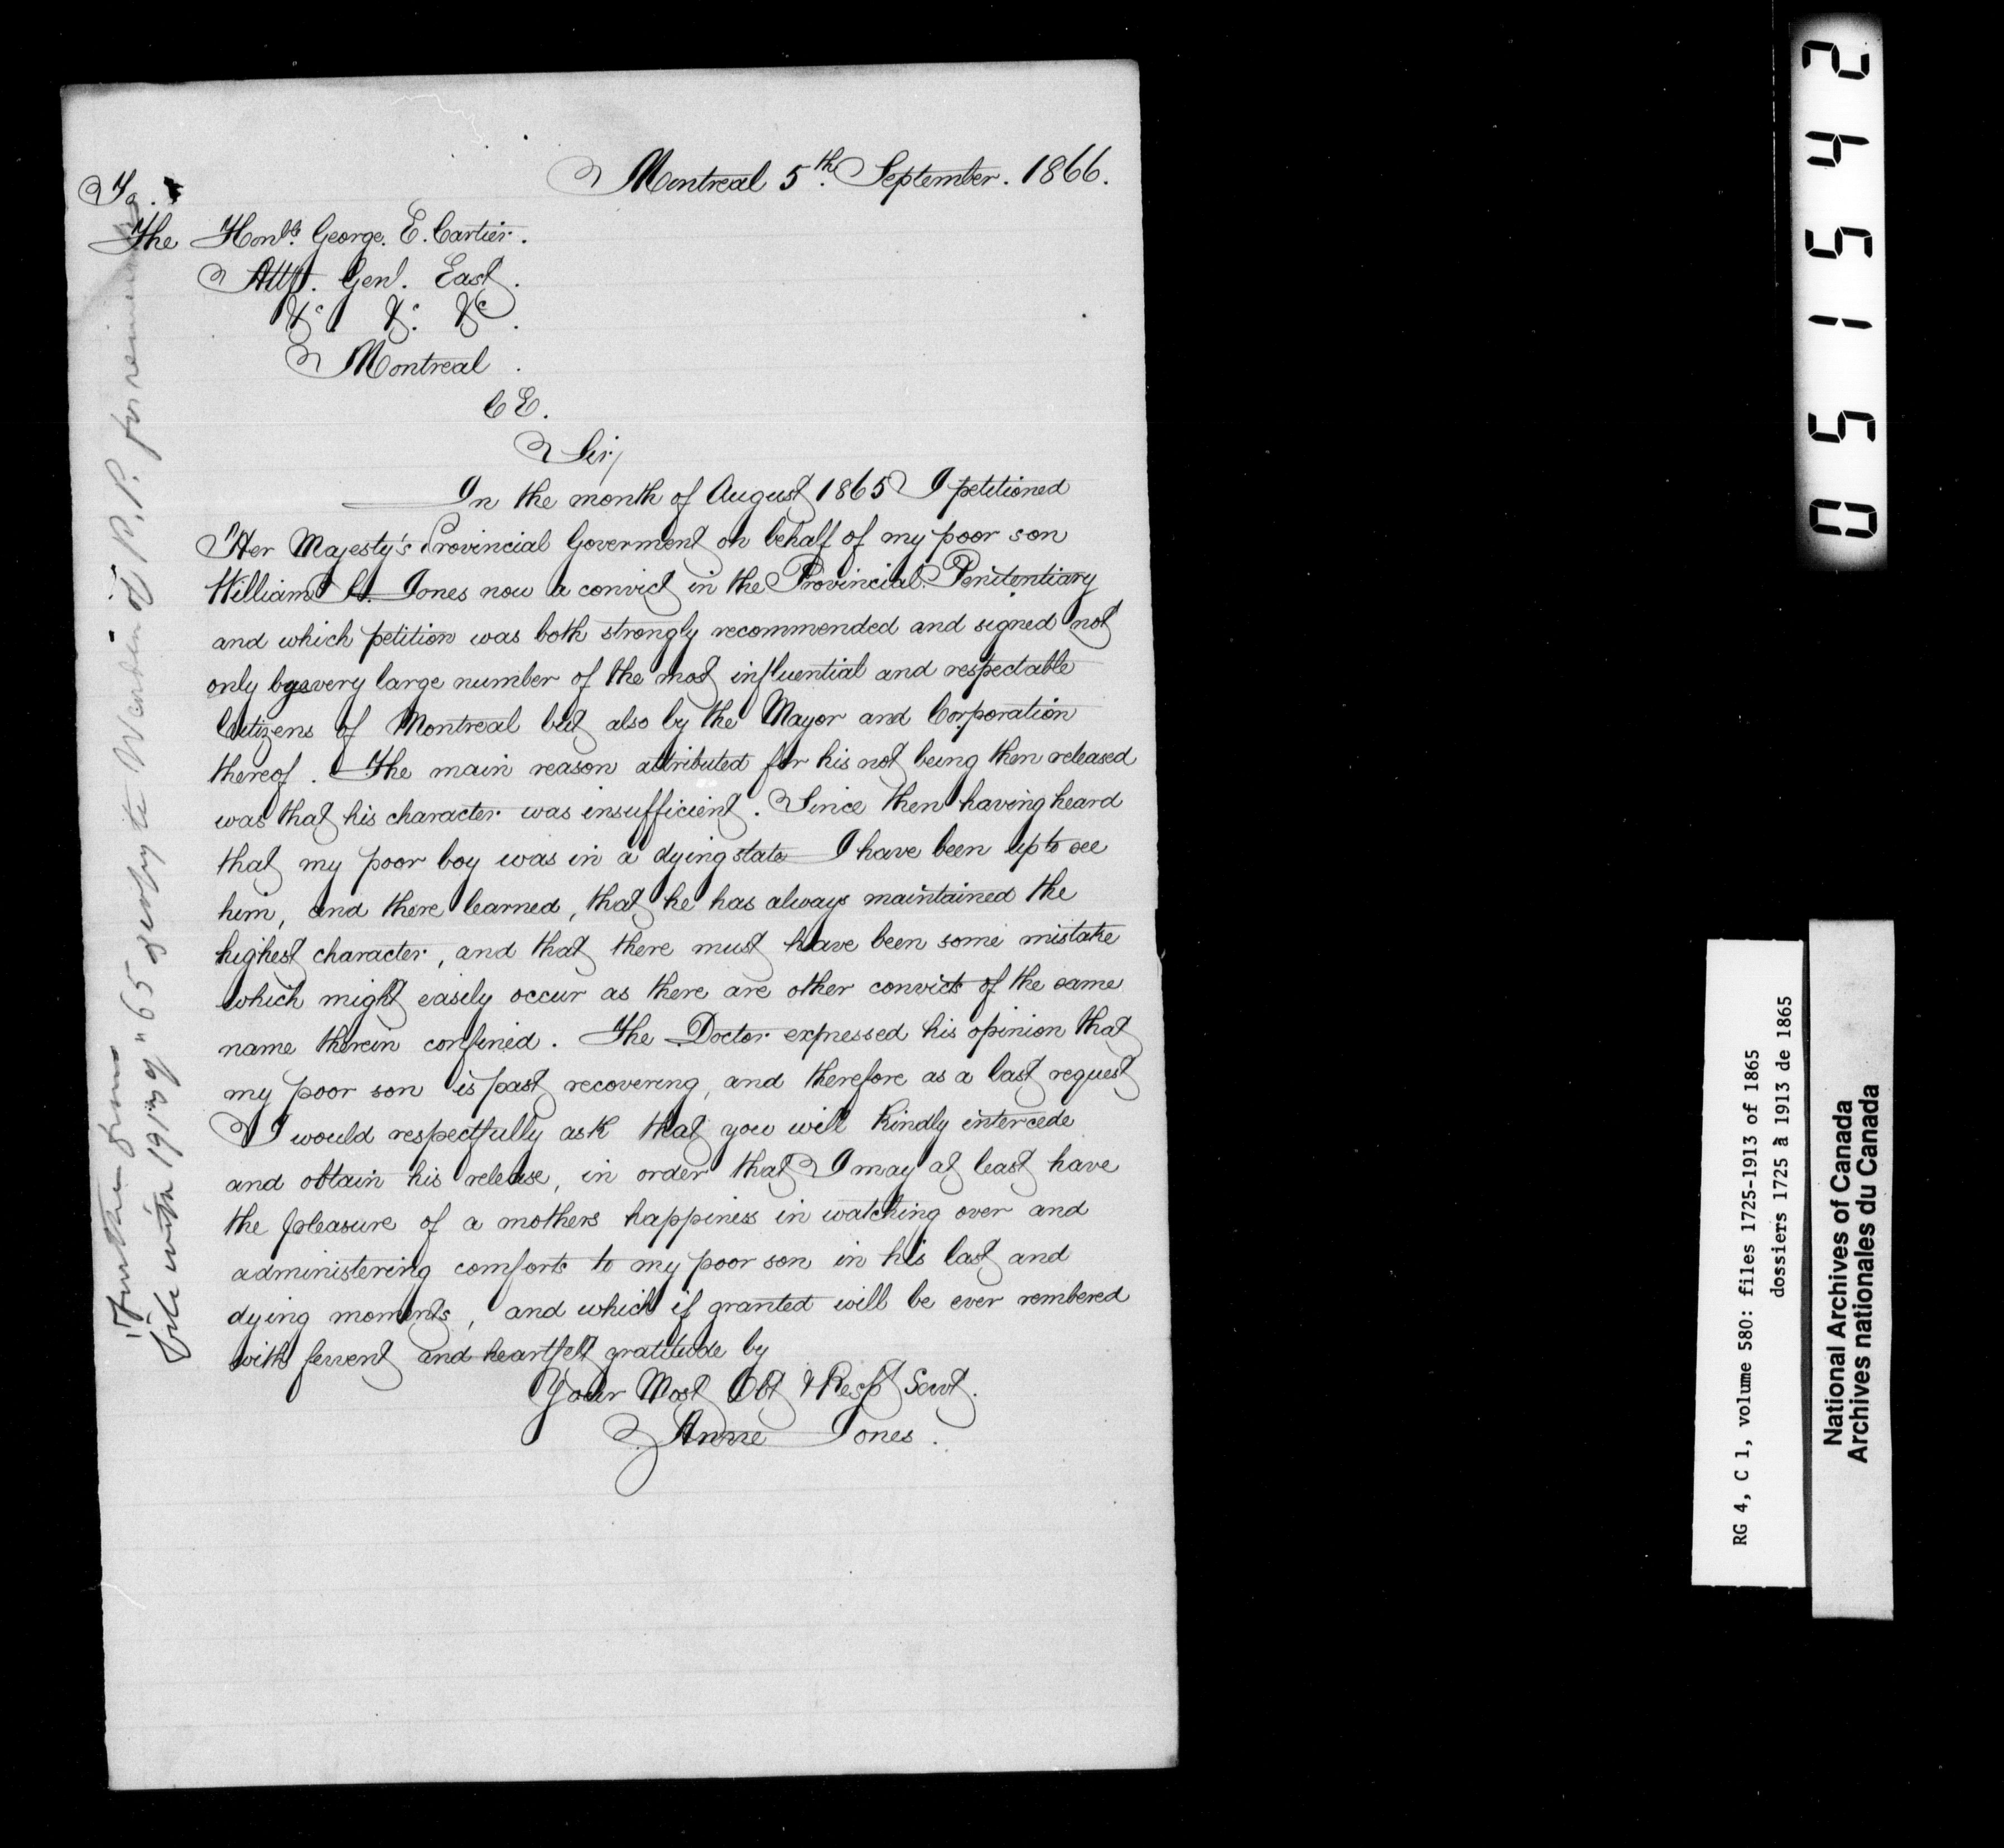 Montreal 5th September. 1866.
To.
The Honble. George. E. Cartier.
Atty. Genl. East.
&c &c. &c.
Montreal.
C E.
Sir,
In the month of August 1865 I petitioned
Her Majesty's Provincial Goverment on behalf of my poor son
William Jones now a convict in the Provincial Penitentiary
and which petition was both strongly recommended and signed not
only by a very large number of the most influential and respectable
Citizens of Montreal but also by the Mayor and Corporation
thereof. The main reason attributed for his not being then released
was that his character was insufficient. Since then having heard
that my poor boy was in a dying state I have been up to see
him, and there learned, that he has always maintained the
highest character, and that there must have been some mistake
which might easily occur as there are other convicts of the same
name therein confined. The Doctor expressed his opinion that
my poor son is past recovering, and therefore as a last request
I would respectfully ask that you will kindly intercede
and obtain his release, in order that I may at least have
the pleasure of a mothers happiness in watching over and
administering comforts to my poor son in his last and
dying moments, and which if granted will be ever rembered
with fervent and heartfelt gratitude by
Your Most Obt & Respt Servt.
Anne Jones.
File with 1913 of "65 Warden of P.P. for
051542
RG 4, C 1, volume 580: files 1725-1913 of 1865
dossiers 1725 à 1913 de 1865
National Archives of Canada
Archives nationales du Canada